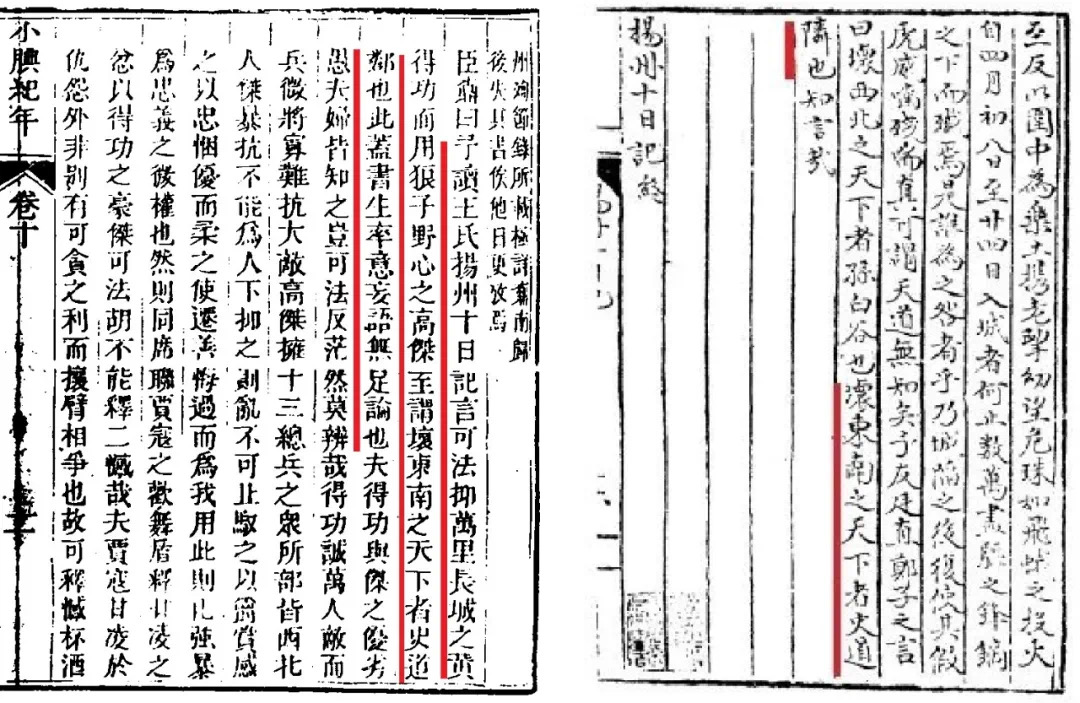 州殉節錄所載極詳奔南歸
後失其書俟他日更攷焉
臣鼒曰予讀王氏揚州十日記言可法抑萬里長城之黃
得功而用狼子野心之高傑至謂壞東南之天下者史道
鄰也此蓋書生率意妄語無足論也夫得功與傑之優劣
愚夫婦皆知之豈可法反茫然莫辨哉得功誠萬人敵而
兵微將寡難抗大敵高傑擁十三總兵之眾所部皆西北
人傑暴抗不能爲人下抑之則亂不可止馭之以爵賞感
之以忠悃優而柔之使遷善悔過而爲我用此則化強暴
爲忠義之微權也然則同席聯賈寇之歡舞盾釋甘凌之
忿以得功之豪傑可法胡不能釋二憾哉夫賈寇甘凌於
仇怨外非別有可貪之利而攘臂相爭也故可釋憾杯酒
小腆紀年 卷十
至反以圍中為樂土揚老挈幼望危如飛蛾之投火
自四月初八日至廿四日入城者何止數萬盡驅之鋒鏑
之下而殲焉是誰為之咎者乎乃城陷之後復使其假
虎威噬殘喘真可謂天道無知矣予友是真鄭子之言
曰壞西北之天下者孫白谷也壞東南之天下者史道
隣也知言哉
揚州十日記終